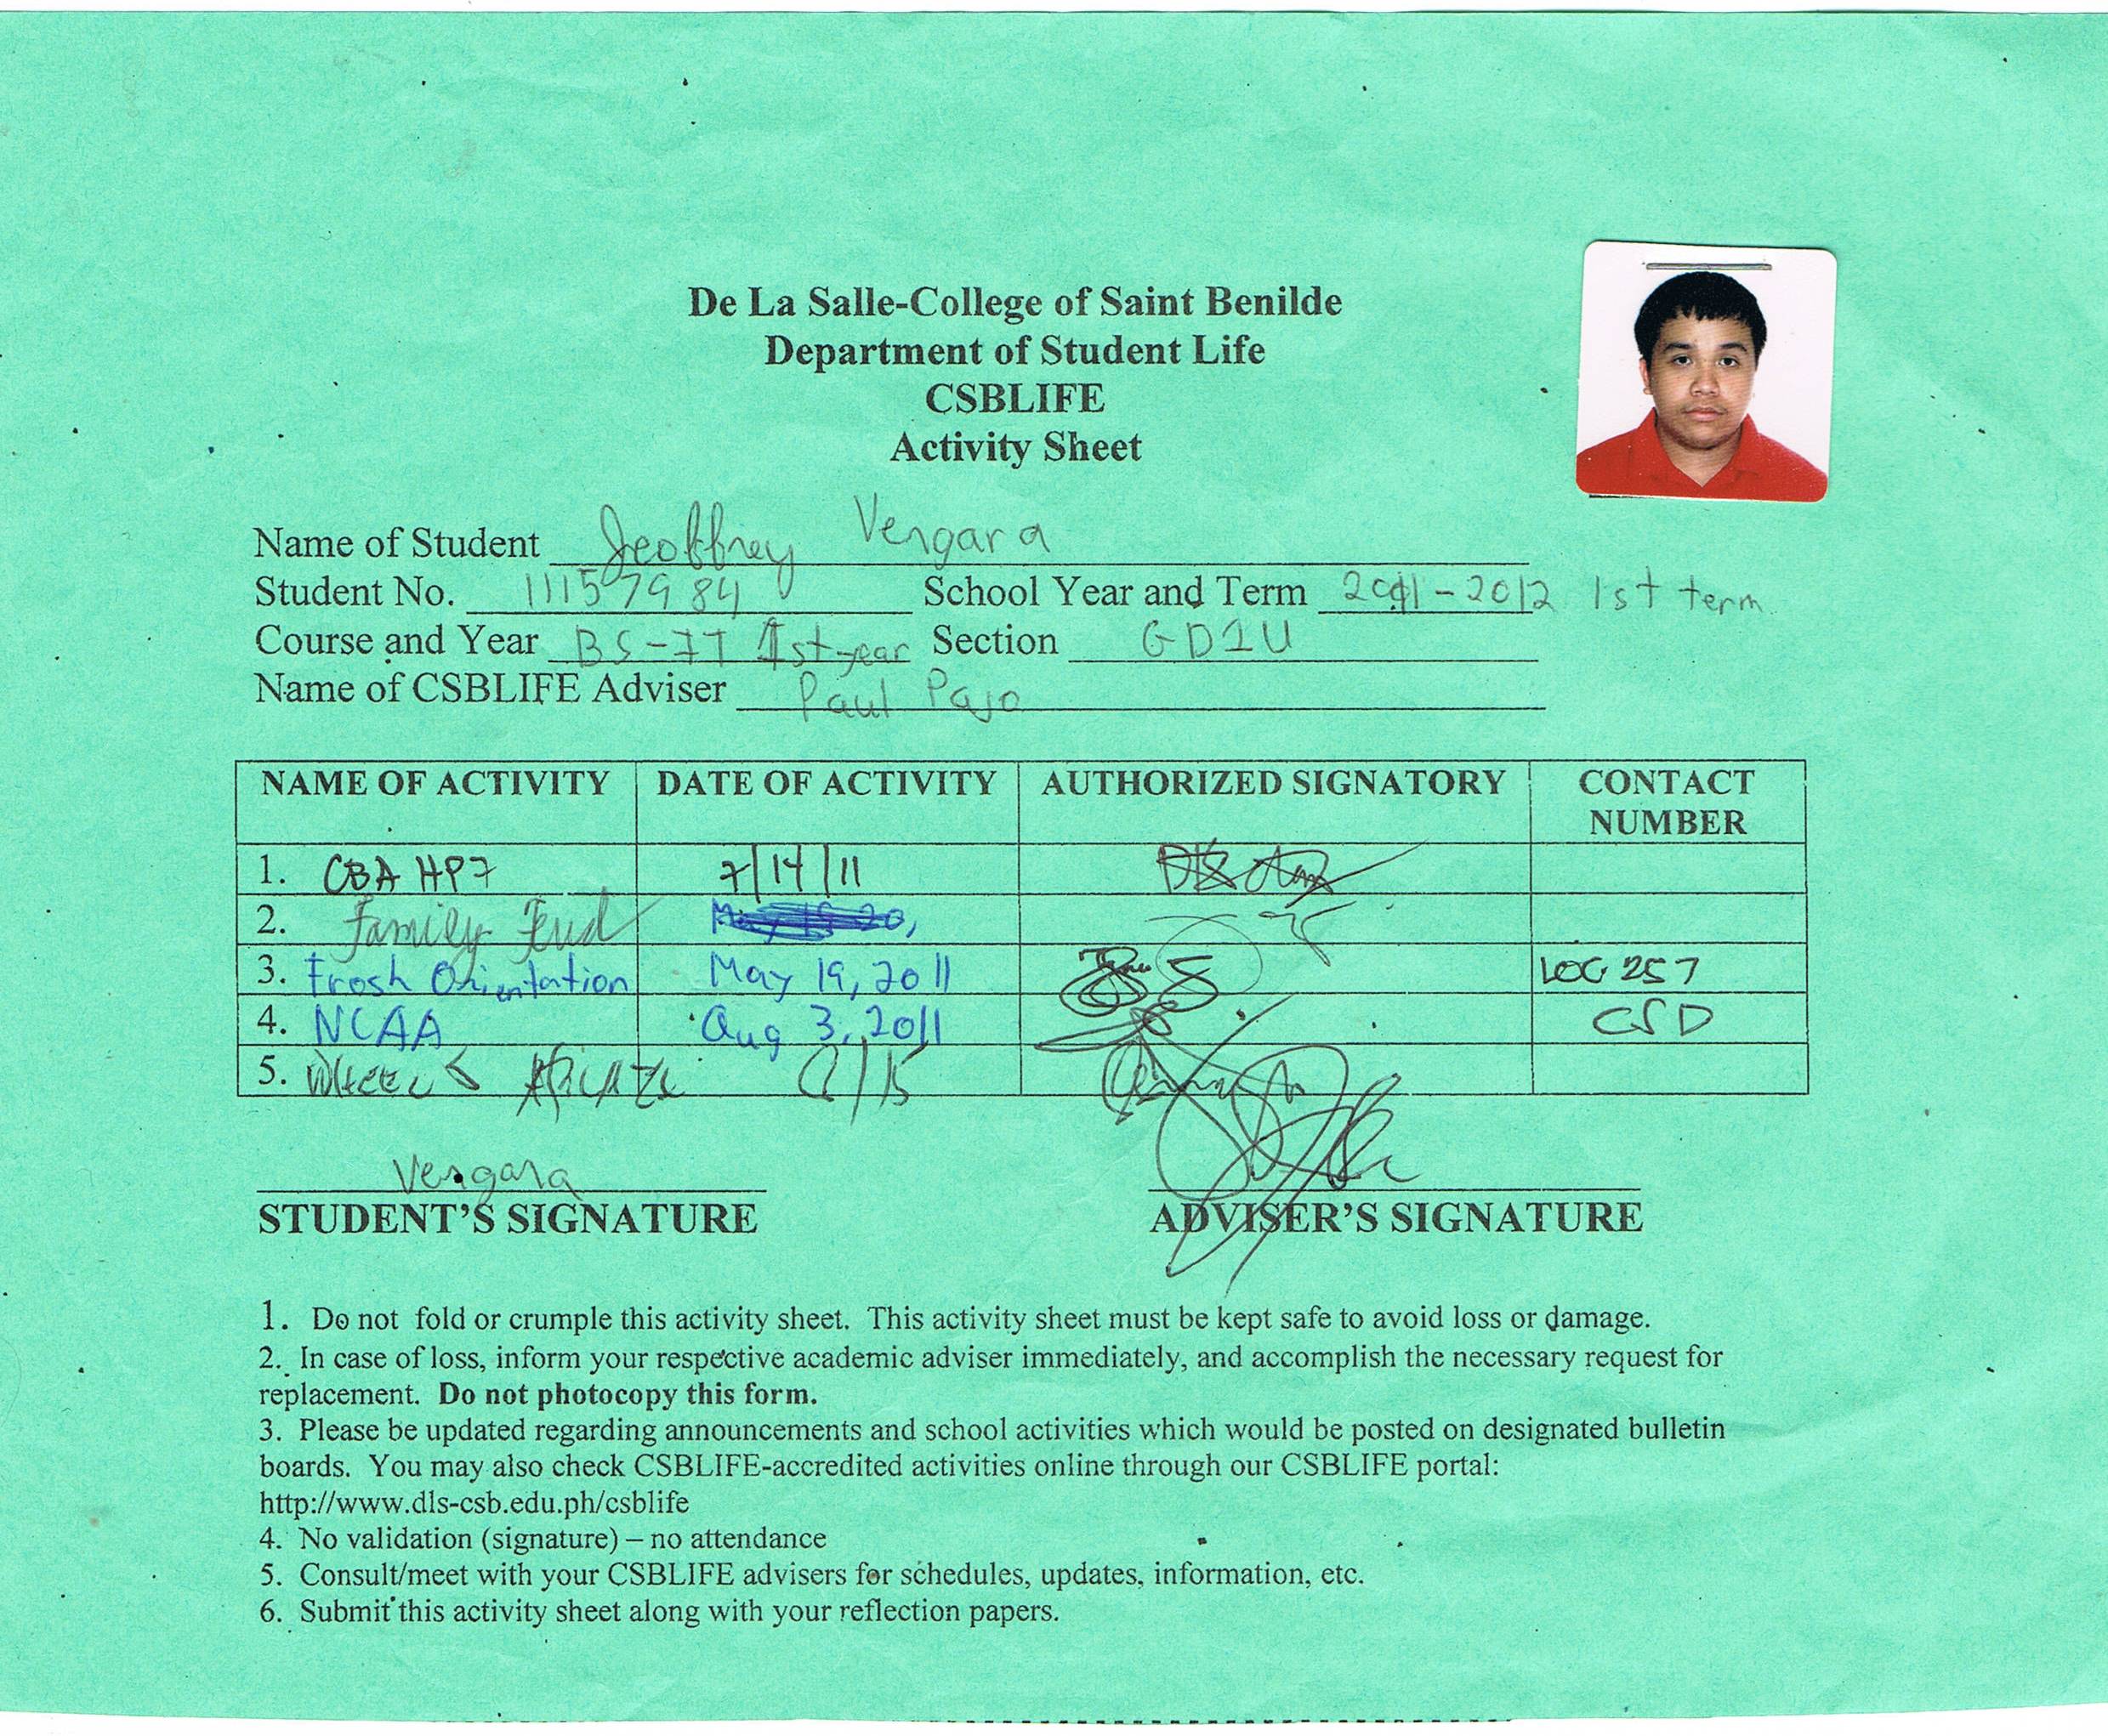 De La Salle-College of Saint Benilde
Department of Student Life
CSBLIFE
Activity Sheet
Name of Student Jeoffrey Vergara
Student No. 11157984 School Year and Term 2011-2012 1st term
Course and Year BS-IT 1st year Section GD1U
Name of CSBLIFE Adviser Paul Pajo
NAME OF ACTIVITY DATE OF ACTIVITY AUTHORIZED SIGNATORY CONTACT NUMBER
1. CBA HP7 7/14/11
2. Family Feud
3. Frosh Orientation May 19, 2011 LOC 257
4. NCAA Aug 3, 2011 CSD
5.
Vergara
STUDENT'S SIGNATURE ADVISER'S SIGNATURE
1. Do not fold or crumple this activity sheet. This activity sheet must be kept safe to avoid loss or damage.
2. In case of loss, inform your respective academic adviser immediately, and accomplish the necessary request for
replacement. Do not photocopy this form.
3. Please be updated regarding announcements and school activities which would be posted on designated bulletin
boards. You may also check CSBLIFE-accredited activities online through our CSBLIFE portal:
http://www.dls-csb.edu.ph/csblife
4. No validation (signature) – no attendance
5. Consult/meet with your CSBLIFE advisers for schedules, updates, information, etc.
6. Submit this activity sheet along with your reflection papers.